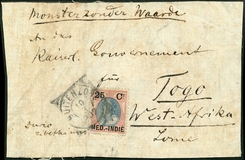 Monster zonder Waarde
An das
Kaiserl. Gouvernement
für
Togo
West-Afrika
Lome
25 Ct
NED.-INDIE